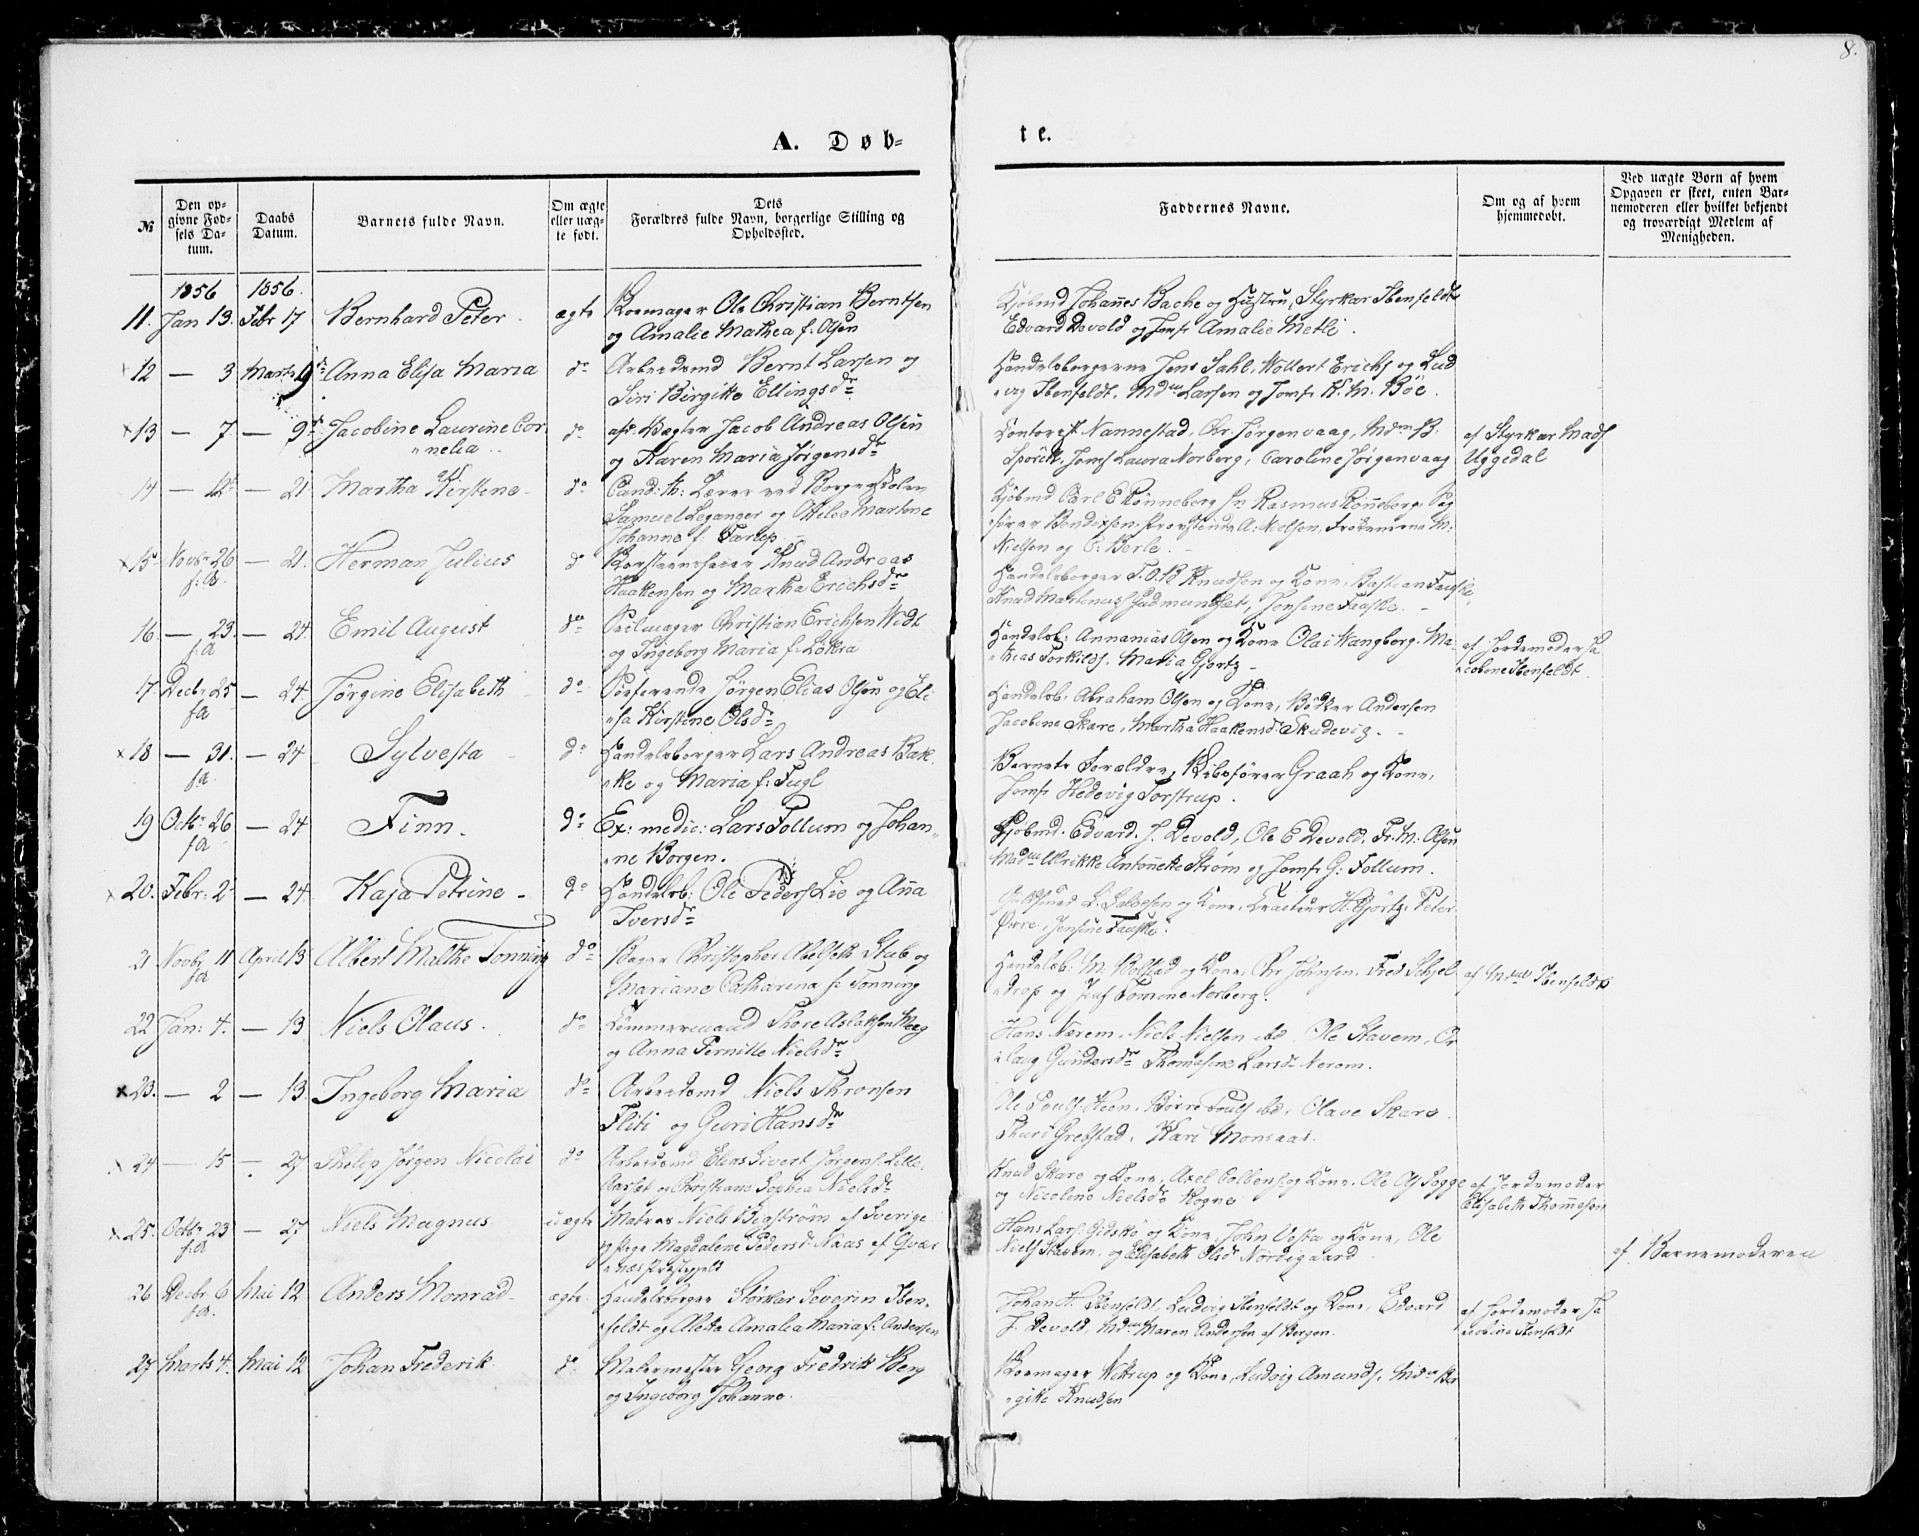 8.
A. Døb-
te.
№
Den op-
givne Fød-
sels Da-
tum.
Daabs
Datum.
Barnets fulde Navn.
Om ægte
eller uæg-
te født.
Dets
Forældres fulde Navn, borgerlige Stilling og
Opholdssted.
Faddernes Navne.
Om og af hvem
hjemmedøbt.
Ved uægte Børn af hvem
Opgaven er skeet, enten Bar-
nemoderen eller hvilket bekjendt
og troværdigt Medlem af
Menigheden.
1856 1856
11. Jan 13. Febr 17 Bernhard Peter. ægte Ole Christian Berntsen
og Amalie Mathea f. Olsen
Kjøbmd Johannes Backe og Hustru, Styrkar Ibenfeldt
Edvard Devold og Jomfr Amalie Metli.
12 — 3 Marts 9 Anna Elisa Maria do Arbeidsmd Bernt Larsen og
Siri Birgitte Ellingsdr
Handelsborgerne Jens Dahl, Wollert Erichs og Lud
vig Ibenfeldt, Mdm Larsen og Jomfr K. M. Böe.
13 — 7 — 9 Jacobine Laurine Cor
nelia do Jacob Andreas Olsen
og Karen Maria Jørgensdr
Nannestad, Chr. Jørgenvaag, Mdm B.
Jomf Laura Norberg, Caroline Jørgenvaag
af Styrkar Mads
Uggedal
14 — 12 — 21 Martha Kirstene do Cand: th: Lærer ved Borgerskolen
Samuel Leganger og Martine
Johanne f.
Kjøbmd Carl E Rønneberg, Rasmus Rønneberg,
Bendixen, A: Nielsen, Frøknerne M.
Nielsen og C: Berle.
15 Novbr 26
f: A — 21. Herman Julius do Knud Andreas
Haakensen og Martha Erichsdr
Handelsborger T. O. B Knudsen og Kone, Bastian Fauske,
Knud Martinus Gudmundset, Jensine Fauske.
16 — 23.
f. A — 24. Emil August do Seilmager Christian Erichsen Widt
og Ingeborg Maria f. Løkra
Handelsb: Annanias Olsen og Kone Olai Wangberg, Ma
thias Torkilds, Maria Gjørtz
af Jordemoder Ja
cobine Ibenfeldt.
17 Decbr 25
f a — 24. Jørgine Elisabeth do Jørgen Elias Olsen og Eli
sa Kirstine Olsdr
Handelsb. Abraham Olsen og Kone, Bödker Andersen
Jacobine Skare, Martha Haakensdr Skudevig.
18 — 31.
f a. — 24 Sylvesta do Handelsborger Lars Andreas Bak
ke og Maria f: Fugl
Barnets Forældre, Skibsfører Graah og Kone,
Jomfr Hedevig Torstrup.
19 Octbr 26
f a — 24 Finn. do Ex: medic: Lars Follum og Johan
ne Borgen.
Kjøbmd. Edvard. J. Devold, Ole E Devold, Fr. M: Olsen
Madm Ulrikke Antonette Strøm og Jomfr G: Follum.
20. Febr: 2 — 24. Kaja Petrine do Handelsb: Ole Peders Lie og Anna
Iversdr
og Kone, H. Gjörtz, Peter
Øvre, Jensine Fauske.
21 Novbr 11
f a April 13 Albert Malthe Tonning do Bager Christopher Abelseth Stub og
Mariane Catharina f: Tonning
Handelsb: M. Rolstad og Kone, Chr Johnsen, Fred Schjel
drop og Jomf Tomine Norberg.
af Mdm Ibenfeldt
22 Jan: 4. — 13 Niels Olaus. do Tømmermand Thore Aslaksen
og Anna Pernille Nielsdr
Hans Nærem, Niels Nielsen ibd, Ole Stavem,
Gundersdr Thomasine Larsdr Nerem.
23. — 2 — 13. Ingeborg Maria do Arbeidsmd Niels Thronsen
Fliti og Guri Hansdr
Ole Pouls Heen, Børre Pouls ibd, Olave Skare
Thuri Grebstad, Kari Monsaas.
24 — 15 — 27 Philip Jørgen Nicolai do Arbeidsmd Elias Sivert Jørgens. Lille
og Christiane Sophia Nielsdr
Knud Skare og Kone, Axel Colbens. og Kone, Ole Ols Sogge
og Nicoline Nielsdr Rogne
af Jordemoder
Elisabeth Thommesen
25. Octbr 23
f: a — 27 Niels Magnus uægte Matros Niels Bergström af Sverige
og Pige Magdalene Pedersdr Naas af Qvær
næs Præstegjeld
Hans Lars. Gidskö og Kone, John Vesta og Kone, Ole
Niels Stavem, og Elisabeth Olsdr Nordigaard
af. Barnemoderen
26 Decbr 6
fa. Mai 12 Anders Monrad ægte Handelsborger Størker Severin Iben
feldt og Aletta Amalia Maria f: Andersen
Johan H. Ibenfeldt, Ludvig Ibenfeldt og Kone, Edvard
J. Devold, Mdm Maren Andersen af Bergen.
af Jordemoder Ja
cobine Ibenfeldt
27 Marts 4. Mai 12 Johan Frederik do Malermester Georg Fredrik Berg
og Ingeborg Johanne.
og Kone, Ludvig Amunds, Mdm Bir
gitte Knudsen